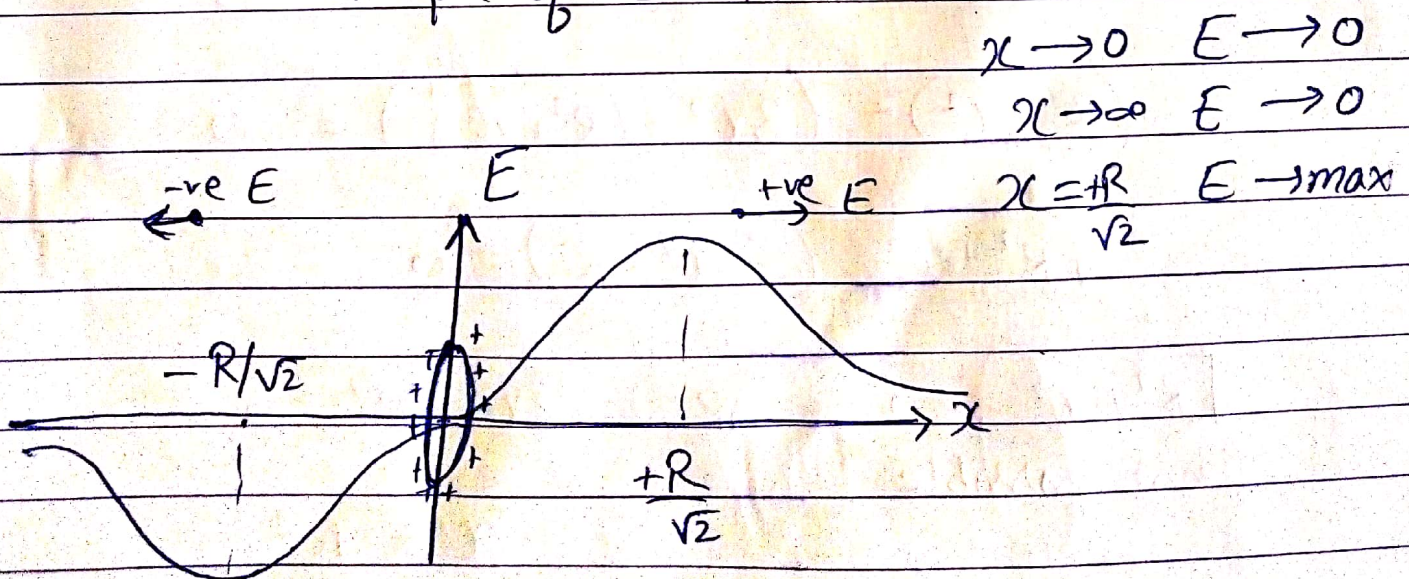 x → 0 E → 0
x → ∞ E → 0
x = +R/√2 E → max
-ve E
E
+ve E
- R/√2
x
+R/√2